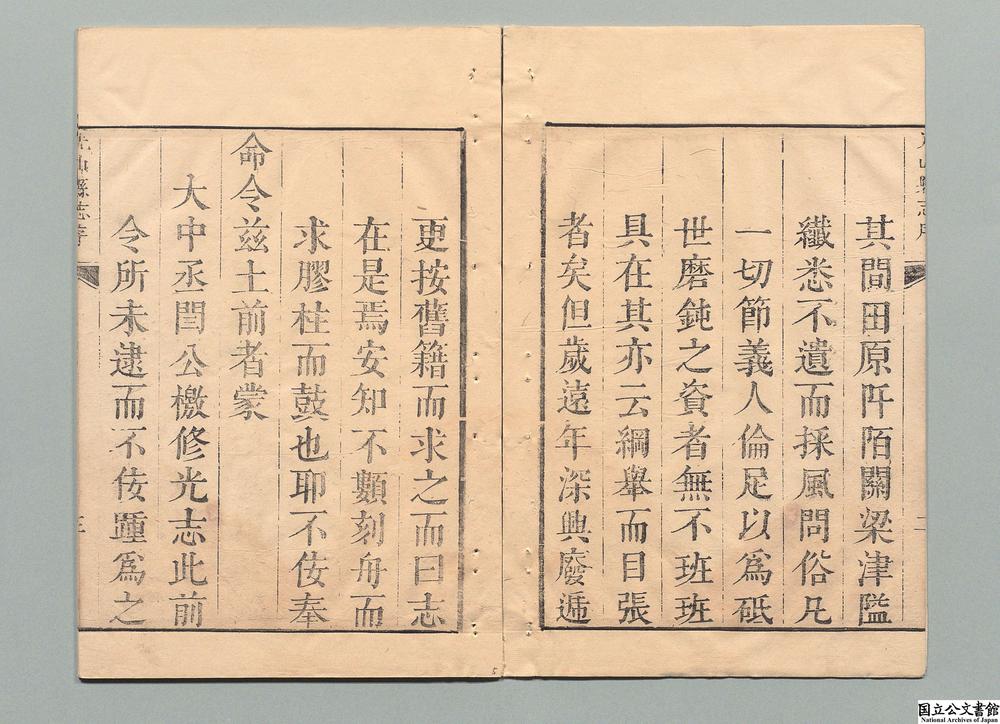 其間田原阡陌關梁津隘
纖悉不遺而採風問俗凡
一切節義人倫足以爲砥
世磨鈍之資者無不班班
具在其亦云綱舉而目張
者矣但歲遠年深興廢遞
更按舊籍而求之而曰志
在是焉安知不類刻舟而
求膠柱而鼓也耶不佞奉
命令兹土前者蒙
大中丞閆公檄修光志此前
令所未逮而不佞踵爲之
山縣志序
三
国立公文書館
National Archives of Japan